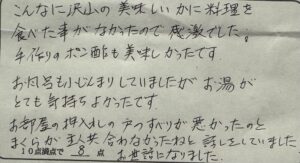 こんなに沢山の美味しいかに料理を
食べた事がなかったので感激でした。
手作りのポン酢も美味しかったです。
お風呂も小じんまりしていましたがお湯が
とても気持ちよかったです。
お部屋の押入れの戸のすべりが悪かったのと
まくらが 合わなかったねと話をしていました
10点満点で 8 点 お世話になりました。